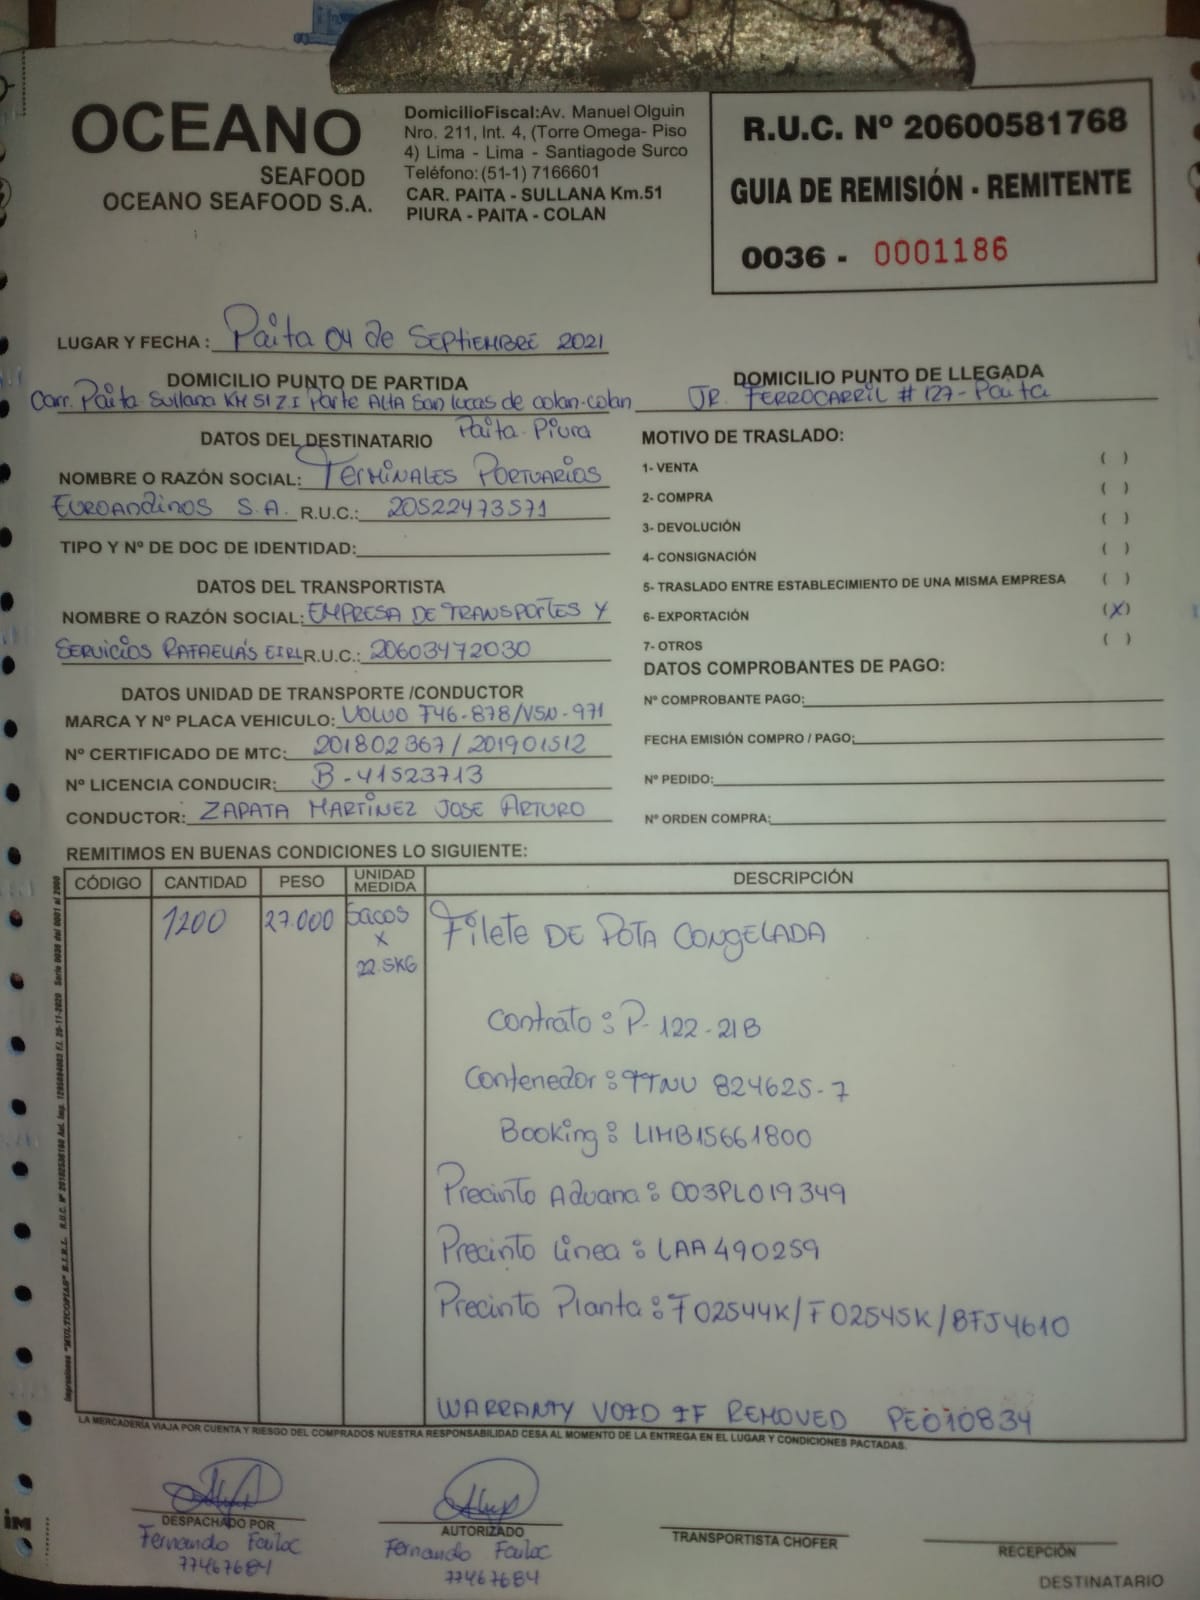 OCEANO
SEAFOOD
OCEANO SEAFOOD S.A.
DomicilioFiscal:Av. Manuel Olguin
Nro. 211, Int. 4, (Torre Omega- Piso
4) Lima - Lima - Santiagode Surco
Teléfono: (51-1) 7166601
CAR. PAITA - SULLANA Km.51
PIURA - PAITA - COLAN
R.U.C. Nº 20600581768
GUIA DE REMISIÓN - REMITENTE
0036 - 0001186
LUGAR Y FECHA : Paita 04 de Septiembre 2021
DOMICILIO PUNTO DE PARTIDA
Carr. Paita Sullana KM 51 Z.I Parte Alta San Lucas de colan-colan
Paita-Piura
DOMICILIO PUNTO DE LLEGADA
JR. FERROCARRIL # 127- Paita
DATOS DEL DESTINATARIO
NOMBRE O RAZÓN SOCIAL: Terminales Portuarios
Euroandinos S.A. R.U.C.: 20522473571
TIPO Y Nº DE DOC DE IDENTIDAD:
DATOS DEL TRANSPORTISTA
NOMBRE O RAZÓN SOCIAL: EMPRESA DE TRANSPORTES Y
Servicios RAFAELLA'S EIRL R.U.C.: 20603472030
DATOS UNIDAD DE TRANSPORTE /CONDUCTOR
MARCA Y Nº PLACA VEHICULO: VOLVO /VSN-971
Nº CERTIFICADO DE MTC: 201802367 / 201901512
Nº LICENCIA CONDUCIR: B-41523713
CONDUCTOR: ZAPATA MARTINEZ JOSE ARTURO
MOTIVO DE TRASLADO:
1- VENTA ( )
2- COMPRA ( )
3- DEVOLUCIÓN ( )
4- CONSIGNACIÓN ( )
5- TRASLADO ENTRE ESTABLECIMIENTO DE UNA MISMA EMPRESA ( )
6- EXPORTACIÓN (X)
7- OTROS ( )
DATOS COMPROBANTES DE PAGO:
Nº COMPROBANTE PAGO:
FECHA EMISIÓN COMPRO / PAGO:
Nº PEDIDO:
Nº ORDEN COMPRA:
REMITIMOS EN BUENAS CONDICIONES LO SIGUIENTE:
CÓDIGO CANTIDAD PESO UNIDAD MEDIDA DESCRIPCIÓN
1200 27.000 Sacos x 22.5KG Filete DE POTA CONGELADA
Contrato : P-122-21B
Contenedor : TTNU 824625-7
Booking : LIMB15661800
Precinto Aduana : 003PL019349
Precinto Linea : LAA490259
Precinto Planta : F02544K/F02545K/BFJ4610
WARRANTY VOID IF REMOVED PE010834
LA MERCADERÍA VIAJA POR CUENTA Y RIESGO DEL COMPRADOS NUESTRA RESPONSABILIDAD CESA AL MOMENTO DE LA ENTREGA EN EL LUGAR Y CONDICIONES PACTADAS.
DESPACHADO POR
Fernando
77467684
AUTORIZADO
Fernando
77467684
TRANSPORTISTA CHOFER
RECEPCIÓN
DESTINATARIO